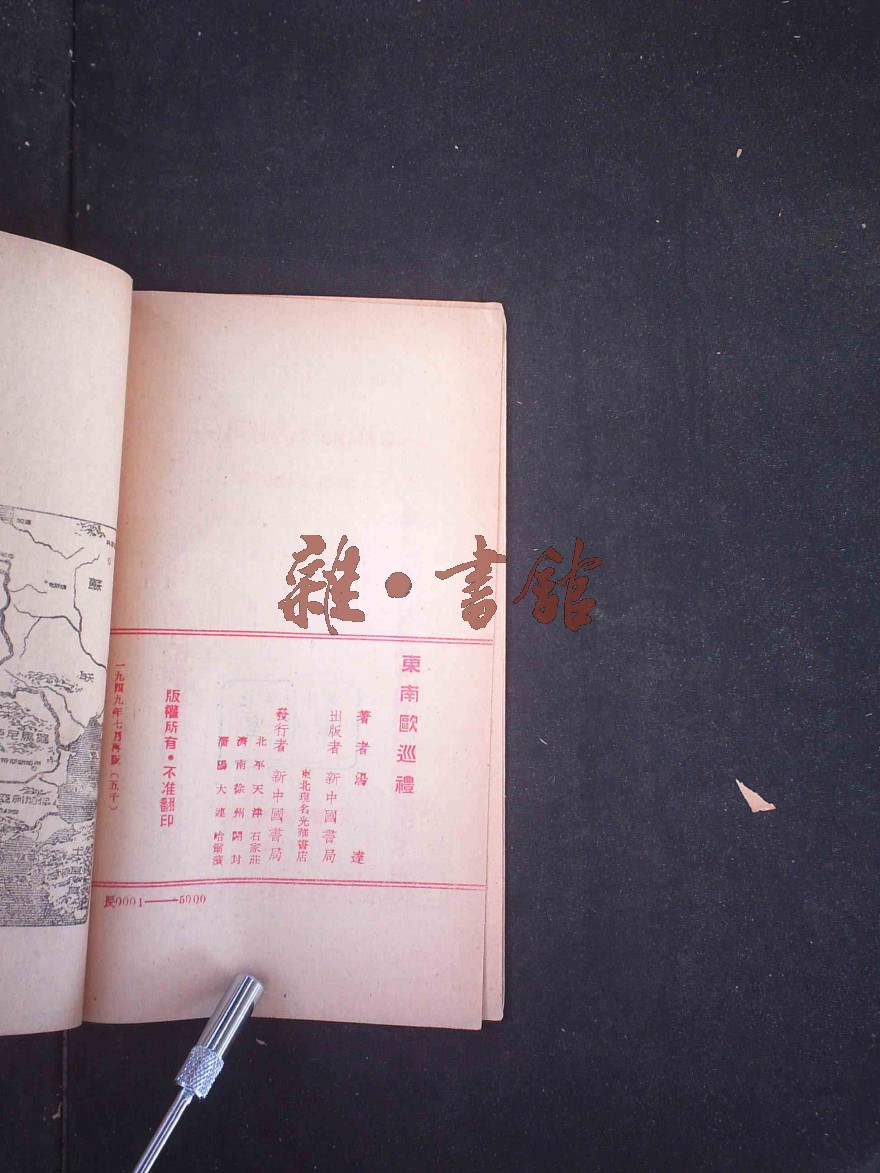 雜·書館
東南歐巡禮
著者 湯達
出版者 新中國書局
東北現名光華書店
發行者 新中國書局
北平 天津 石家莊
濟南 徐州 開封
瀋陽 大連 哈爾濱
版權所有·不准翻印
一九四九年七月再版(五千)
長0001——5000
蘇
联